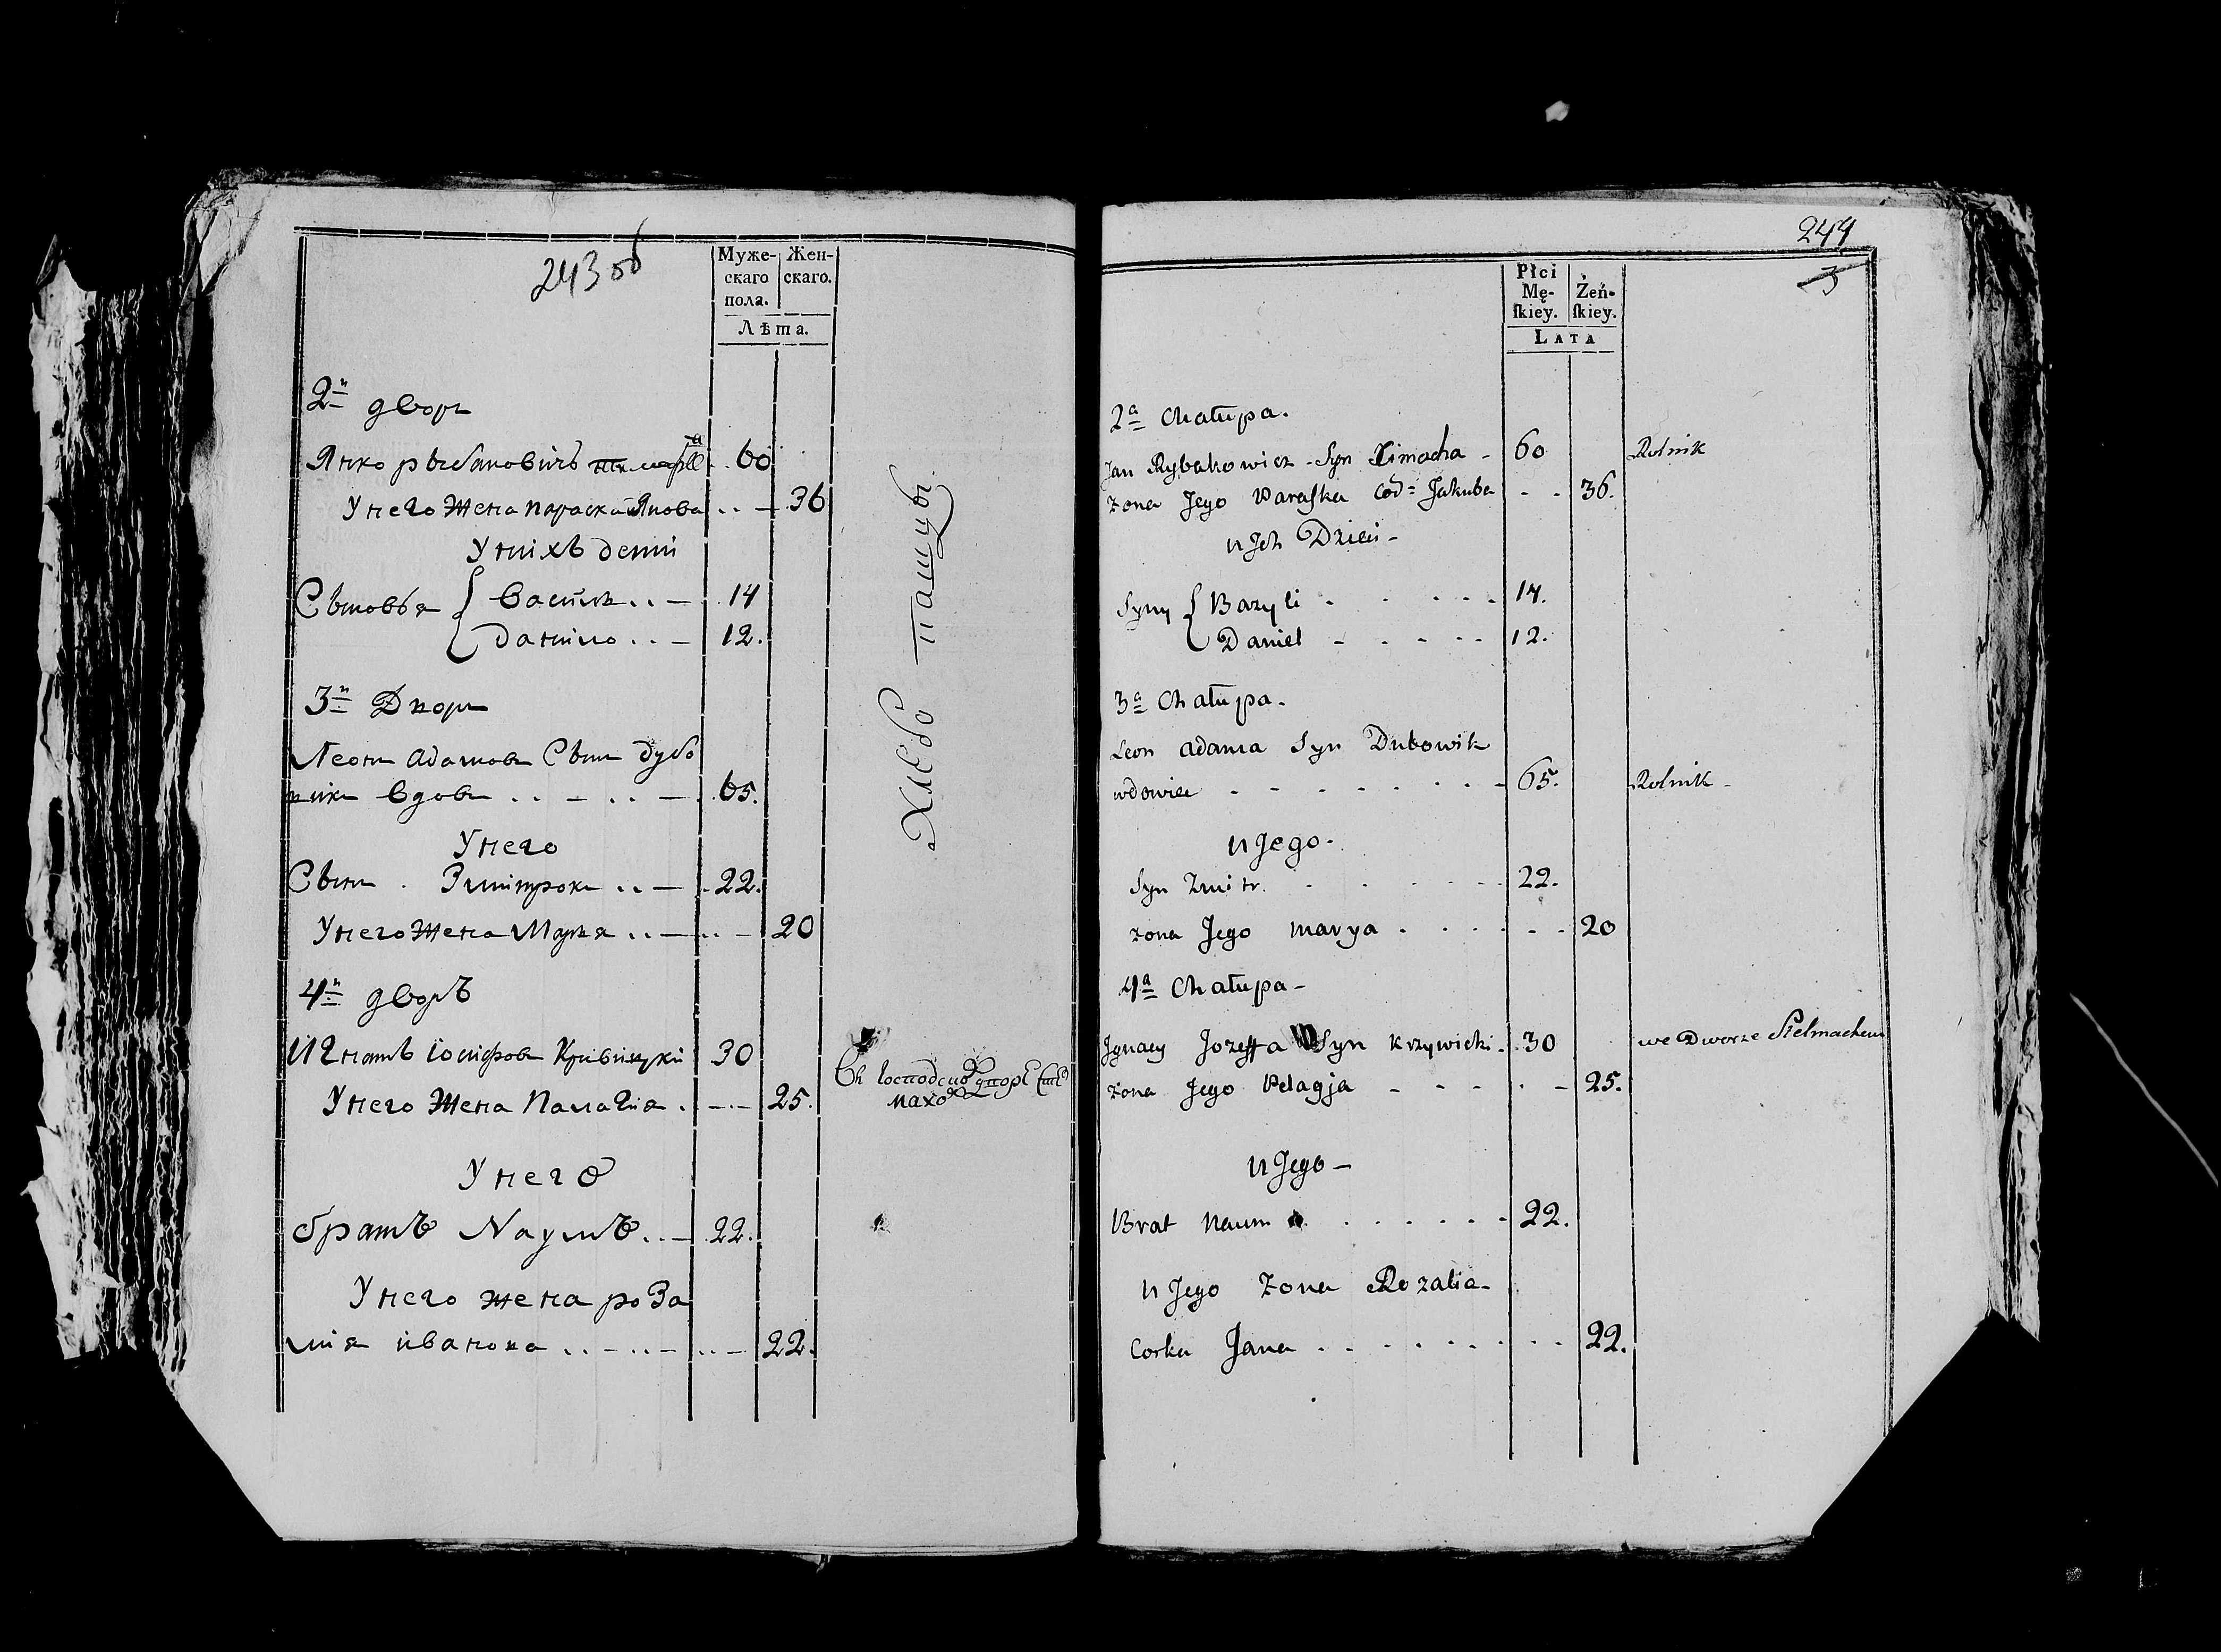 243 об
Муже- Жен-
скаго скаго.
пола.
Лѣта.
2й дворъ
Янко рыбаковичъ 60
У него жена параска Якова 36
У нихъ дети
Сыновья { Василь 14
Данило 12.
3й Дворъ
Леонъ Адамовъ Сынъ дубо
викъ вдовъ 65.
У него
Сынъ Змитрокъ 22.
У него жена Марья 20
4й дворъ
Игнатъ іосифовъ Кривицки 30
У него жена Палагия 25.
У него
братъ Наумъ 22.
У него жена роза
лия иванова 22.
Хлебо пашцы
Въ Господскомъ дворе Стель
махомъ
244
3
Płci
Mę- Żeń-
ſkiey. ſkiey.
LATA
2a Chałupa.
Jan Rybakowicz - Syn Cimocha - 60 Rolnik
Zona Jego Paraska Cód= Jakuba 36.
u Jch Dzieci -
Syny { Bazyli 14.
Daniel 12.
3a Chałupa.
Leon Adama Syn Dubowik
wdowiec 65. Rolnik -
u Jego.
Syn Zmitr. 22.
zona Jego marya 20
4a Chałupa -
Jgnacy Jozeffa Syn Krzywicki. 30 we Dworze Stelmachem
zona Jego Pelagja 25.
u Jego -
Brat Naum 22.
u Jego zona Rozalia
Corka Jana 22.